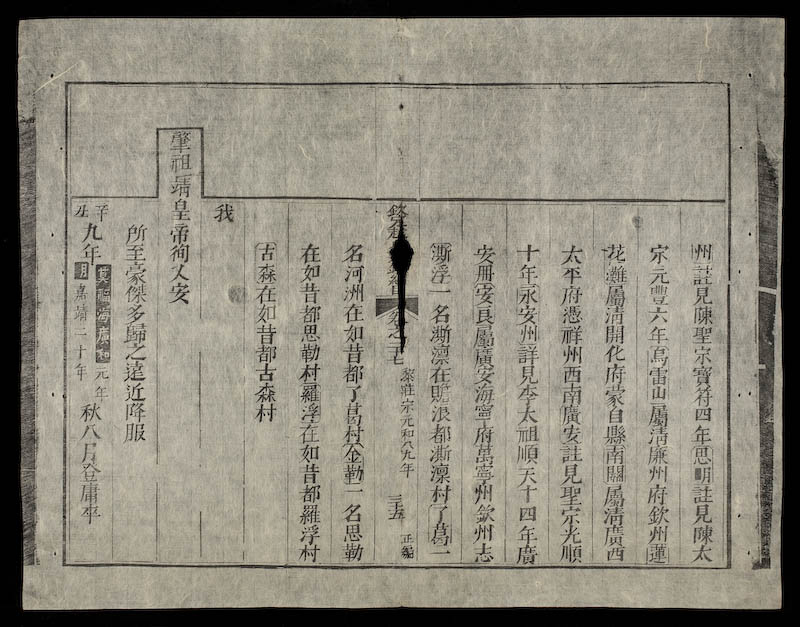 州註見陳聖宗寶符四年思明註見陳太
宗元豐六年寫雷山屬清廉州府欽州蓮
花灘屬清開化府蒙自縣南關屬清廣西
太平府憑祥州西南廣安註見聖宗光順
十年永安州詳見李太祖順天十四年廣
安冊安良屬廣安海寧府萬寧州欽州志
澌浮一名澌凛在贍浪都澌凛村了葛一
欽定
卷之二十七
黎莊宗元和八九年
三十五
正編
名河洲在如昔都了葛村金勒一名思勒
在如昔都思勒村羅浮在如昔都羅浮村
古森在如昔都古森村
我
肇祖靖皇帝徇乂安
所至豪傑多歸之遠近降服
辛丑九年
元年
明嘉靖二十年
秋八月登庸卒